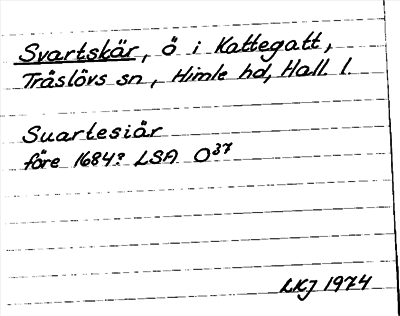 Svartskär, ö i Kattegatt,
Träslövs sn, Himle hd, Hall. l.
Suartesiär
före 1684? LSA O³⁷
LKJ 1974